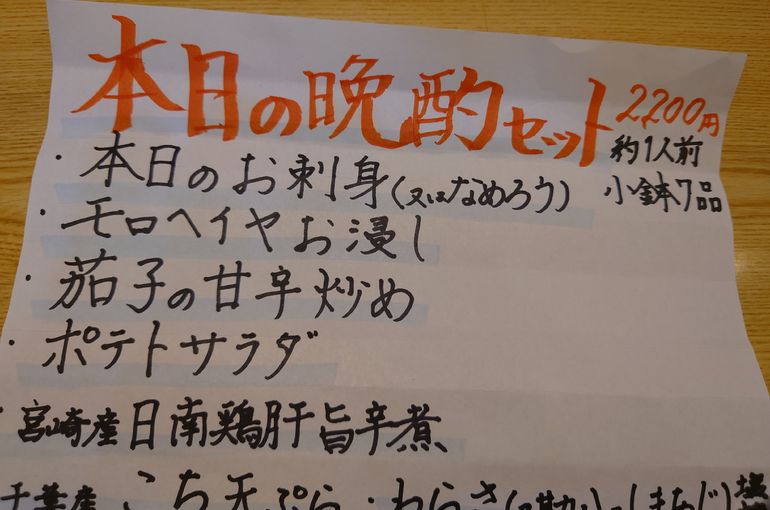 本日の晩酌セット 2,200円
約1人前
小鉢7品
・本日のお刺身(又はなめろう)
・モロヘイヤお浸し
・茄子の甘辛炒め
・ポテトサラダ
・宮崎産日南鶏肝旨辛煮
千葉産 こち天ぷら・わらさ